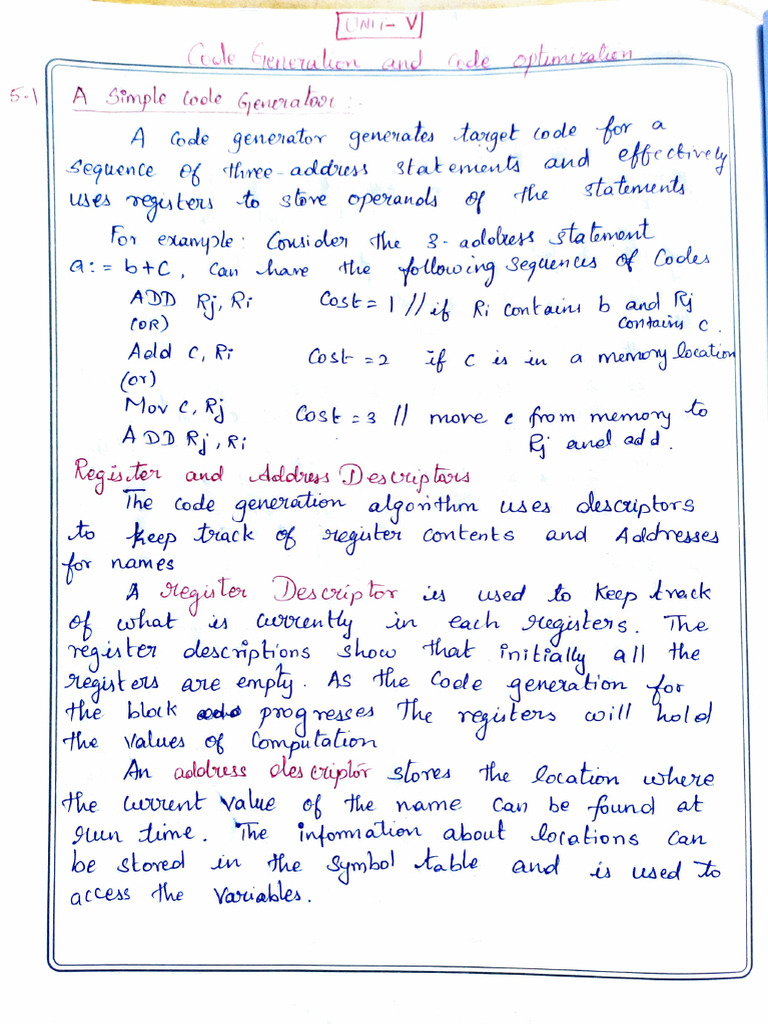 UNIT- V
Code Generation and Code optimization
5.1 A Simple Code Generator:-
A Code generator generates target code for a
sequence of three-address statements and effectively
uses registers to store operands of the statements
For example: Consider the 3-address statement
a:= b+c, Can have the following sequences of Codes
ADD Rj, Ri Cost = 1 // if Ri contains b and Rj contains c.
(OR)
Add c, Ri Cost = 2 if c is in a memory location
(or)
Mov c, Rj Cost = 3 // move c from memory to
ADD Rj, Ri Rj and add.
Register and Address Descriptors
The code generation algorithm uses descriptors
to keep track of register contents and Addresses
for names
A register Descriptor is used to keep track
of what is currently in each registers. The
register descriptions show that initially all the
registers are empty. As the Code generation for
the block progresses the registers will hold
the values of Computation
An address descriptor stores the location where
the current value of the name can be found at
run time. The information about locations can
be stored in the symbol table and is used to
access the variables.